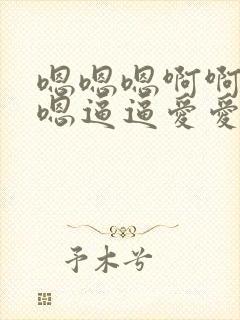 嗯嗯嗯啊啊
嗯逼逼爱爱
予木兮